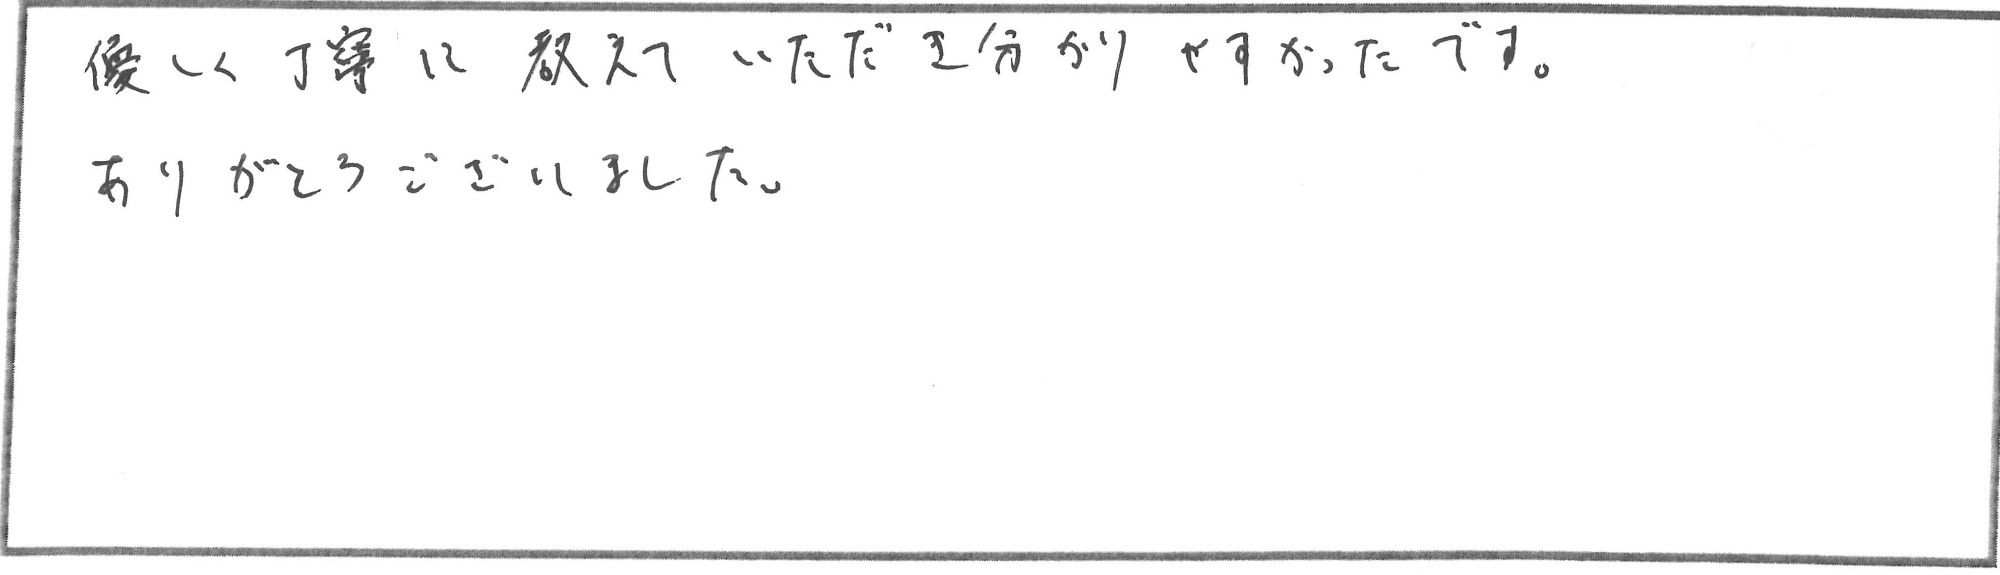 優しく丁寧に教えていただき分かりやすかったです。
ありがとうございました。